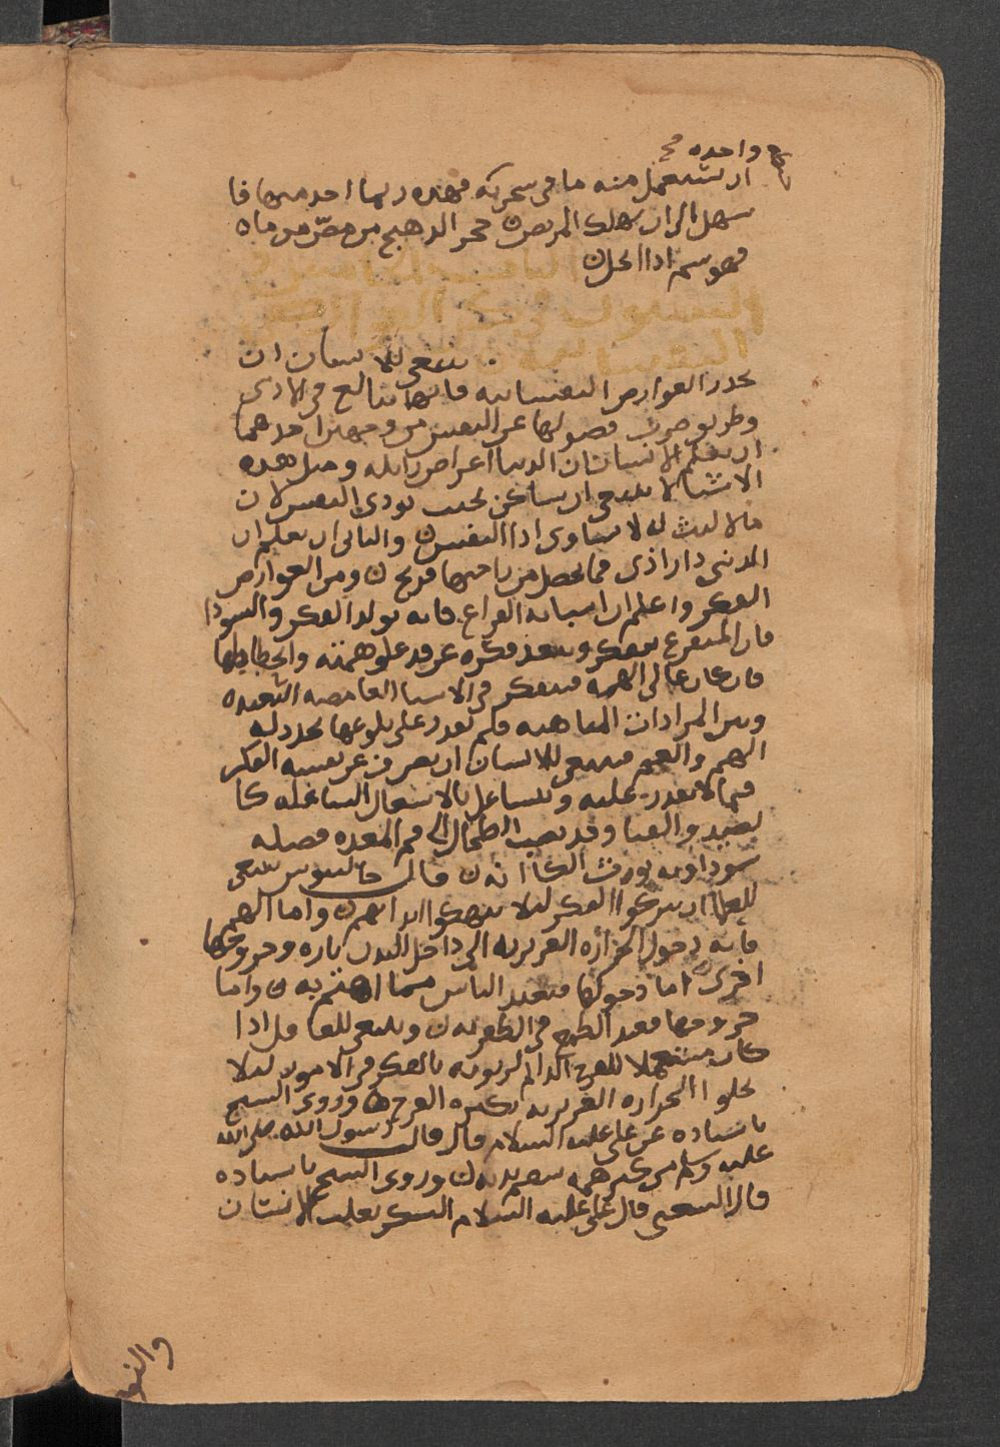 واحده صح
ان يستعمل منه ما في سحريه فهذه ربما احد منها فا
سهل الى ان يهلك المريض ن حجر الدهنج من مصّ من ماه
فهو سم اذا انحل ن
الباب
في ذكر العوارض
النفسانيه
ينبغي للانسان ان
يحذر العوارض النفسانيه فانها تبالغ في الاذى
وطريق صرف فضولها عن النفس من وجهين احدهما
ان يعلم الانسان ان الدنيا اعراض زايله ومثل هذه
الاشيا لا ينبغي ان يساكن بحيث يوذي النفس لان
مالا لبث له لا يساوي اذا النفس ن والثاني ان يعلم ان
الدنيى دار اذى فما يحصل من راحتها فربح ن ومن العوارض
الفكر واعلم ان اسبابه الفراغ فانه يولد الفكر والسودا
فان المتفرغ يتفكر وينفذ فكره عن قدر علو همته وانحطاطها
فان كان عالي الهمه فيتفكر في الاشيا الغامضه البعيده
ونيل المرادات المتناهيه فلم يقدر على بلوغها تجدد له
الهم والغم فينبغي للانسان ان يصرف عن نفسه الفكر
فيما لا يقدر عليه ويتشاغل بالاشغال الشاغله كا
لصيد والغنا وقد يصب الطحال الى فم المعده فضله
سوداويه يورث الكاابه ن قال جالينوس ينبغي
للعلما ان يتركوا الفكر ليلا ينهكوا ابدانهم ن واما الهم
فانه دخول الحراره الغريزيه الى داخل البدن تاره وخروجها
اخرى اما دخولها فبعد الياس مما اهتم به ن واما
خروجها فعند الطمع في الظفر به ن وينبغي للعاقل اذا
كان مستعملا للفرح الدايم ان يونه بالفكر في الامور ليلا
تحلوا الحراره الغريزيه بكثره الفرح ن وروى الشيخ
باسناده عن علي عليه السلام قال قال رسول الله صلى الله
عليه وسلم من كثر همه سقم بدنه ن وروى الشيخ باسناده
قال الشعبي قال علي عليه السلام السكر يغلب الانسان
والنو